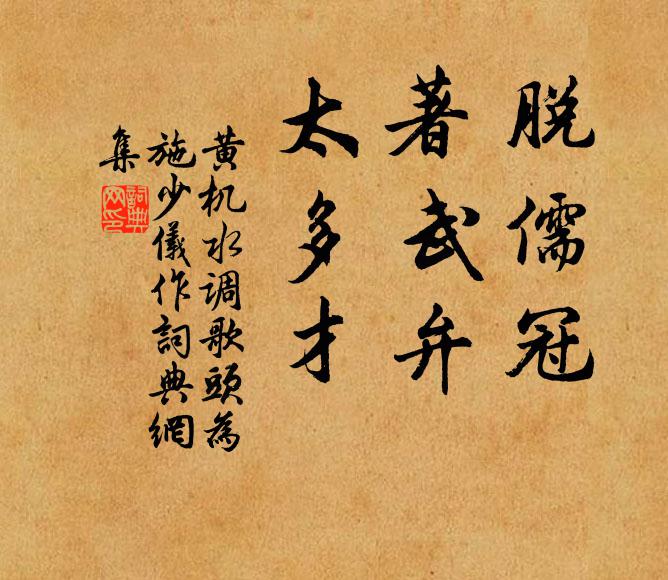 脱儒冠
著武弁
太多才
黄机水调歌頭為
施少儀作詞典網
集
詞典
网印